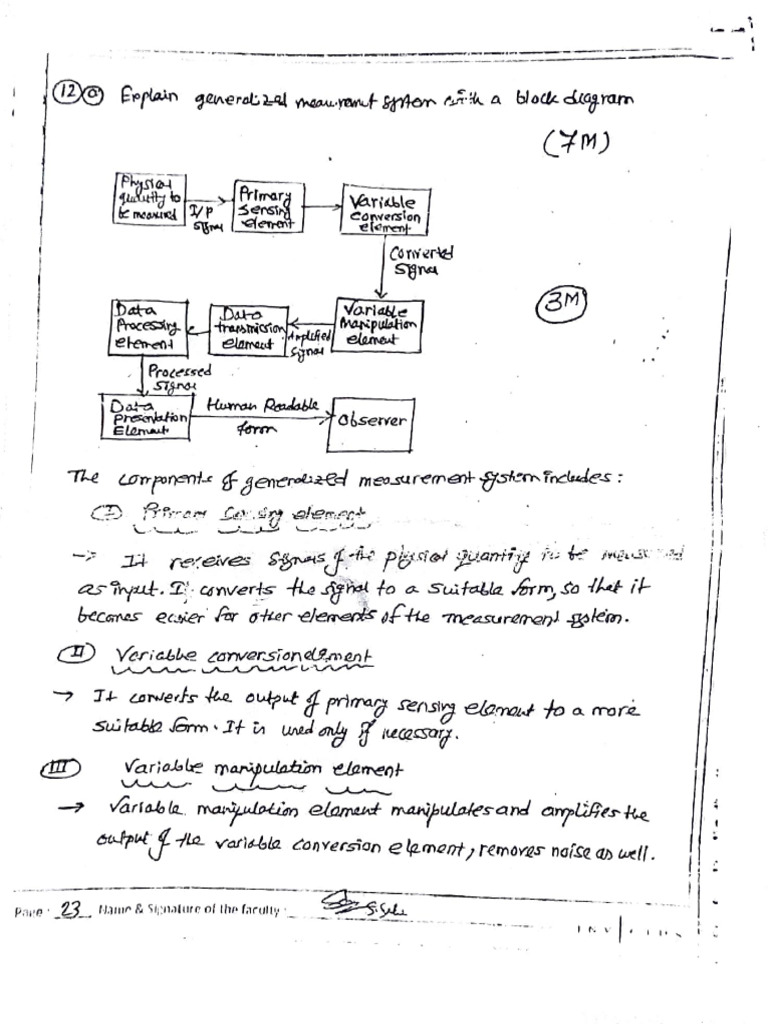 12 a Explain generalized measurement system with a block diagram
(7M)
Physical
quantity to
be measured
I/P
signal
Primary
sensing
element
Variable
conversion
element
Converted
signal
3M
Data
Processing
element
Data
transmission
element
Amplified
signal
Variable
Manipulation
element
Processed
signal
Data
presentation
Element
Human Readable
form
Observer
The components of generalized measurement system includes:
(I) Primary sensing element
-> It receives signals of the physical quantity to be measured
as input. It converts the signal to a suitable form, so that it
becomes easier for other elements of the measurement system.
(II) Variable conversion element
→ It converts the output of primary sensing element to a more
suitable form. It is used only if necessary.
(III) Variable manipulation element
→ Variable manipulation element manipulates and amplifies the
output of the variable conversion element, removes noise as well.
Page : 23 Name & Signature of the faculty :